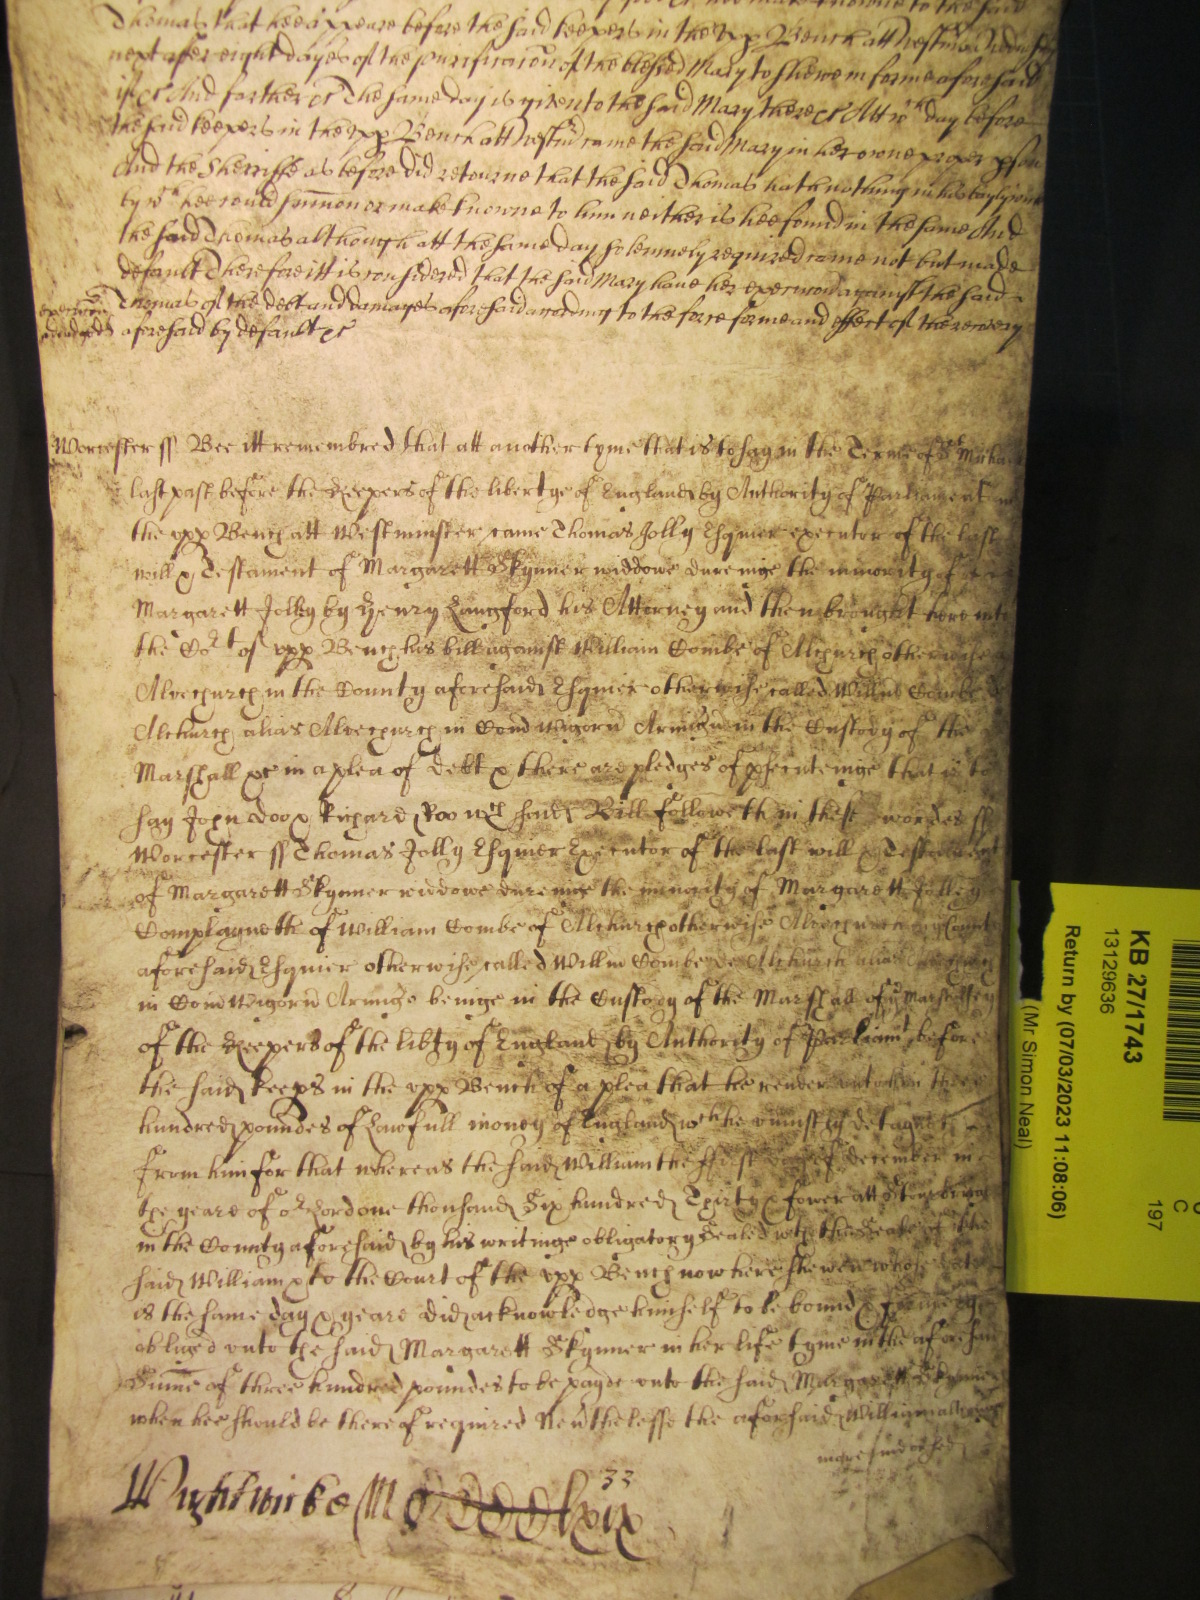 Thomas that hee appeare before the said keepers in the upp Bench att Westm
next after eight dayes of the purificacon of the blessed Mary to shewe in forme aforesaid
if &c And further &c The same day is given to the said Mary there &c Att wch day before
the said keepers in the upp Bench att Westm came the said Mary in her owne proper pson
And the Sherriffe as before did retourne that the said Thomas hath nothing in his
by wch hee could sumon or make knowne to him neither is hee found in the same And
the said Thomas although att the same day solemnely required came not but made
default Therefore itt is considered that the said Mary have her execucon against the said
Thomas of the debt and damages aforesaid according to the force forme and effect of the recovery
aforesaid by default &c
Worcester ss Bee itt remembred that att another tyme that is to say in the Terme of St Michaell
last past before the Keepers of the libertye of England by Authority of Parliament in
the upp Bench att Westminster came Thomas Jolly Esquier executor of the last
will & Testament of Margarett Skynner widdowe dureinge the minority of
Margarett Jolley by Henry Langford his Attorney and then brought here into
the Cort of upp Bench his bill against William Combe of Alchurch otherwise
Alvechurch in the County aforesaid Esquier otherwise called Willm Combe de
Alchurch alias Alvechurch in Com Wigorn Armig in the Custody of the
Marshall &c in a plea of debt & there are pledges of psecuteinge that is to
say John Doo & Richard Roo wch said Bill followeth in these wordes ss
Worcester ss Thomas Jolly Esquier Executor of the last will & Testament
of Margarett Skynner widdowe dureinge the minority of Margarett Jolley
Complayneth of William Combe of Alchurch otherwise Alvechurch in the County
aforesaid Esquier otherwise called Willm Combe de Alchurch alias Alvechurch
in Com Wigorn Armigo beinge in the Custody of the Marshall of ye Marshalsey
of the Keepers of the libty of England by Authority of Parliamt before
the said keeps in the upp Bench of a plea that he render unto him three
hundred poundes of Lawfull money of England wch he uniustly detayneth
from him for that whereas the said William the first day of december in
the yeare of or Lord one thousand Six hundred Thirty & fower att
in the County aforesaid by his writinge obligatory Sealed wth the Seale of the
said William & to the Court of the upp Bench now here shewen whose date
is the same day & yeare did acknowledge himself to be bound &
obliged unto the said Margarett Skynner in her life tyme in the aforesaid
Sume of three hundred poundes to be payde unto the said Margarett Skynner
when hee should be thereof required Nevthelesse the aforsaid William
33
Wightwicke
KB 27/1743
13129636
Return by (07/03/2023 11:08:06)
(Mr Simon Neal)
C
197